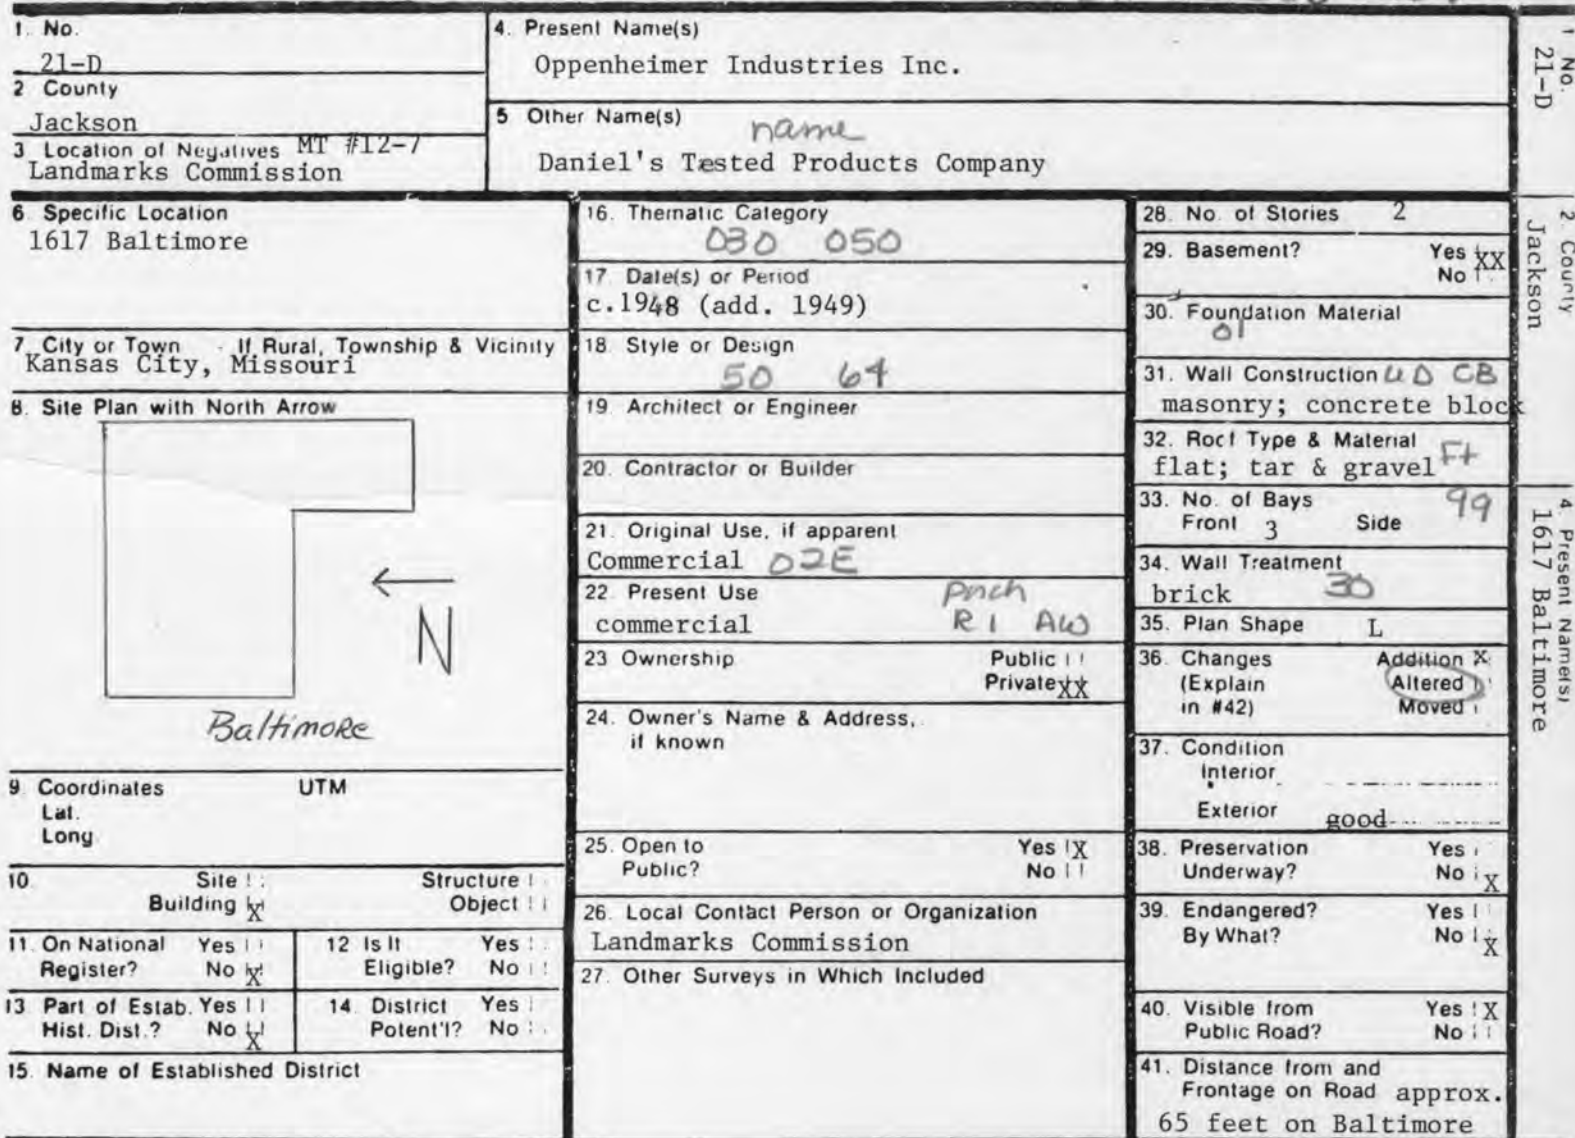 1. No.
21-D
2 County
Jackson
3 Location of Negatives MT #12-7
Landmarks Commission
4. Present Name(s)
Oppenheimer Industries Inc.
5 Other Name(s)
name
Daniel's Tested Products Company
6. Specific Location
1617 Baltimore
7 City or Town If Rural, Township & Vicinity
Kansas City, Missouri
8. Site Plan with North Arrow
N
Baltimore
9. Coordinates UTM
Lat.
Long
10. Site Structure
Building X Object
11. On National Yes
Register? No X
12 Is It Yes
Eligible? No
13 Part of Estab. Yes
Hist. Dist.? No X
14. District Yes
Potent'l? No
15. Name of Established District
16. Thematic Category
030 050
17 Date(s) or Period
c.1948 (add. 1949)
18. Style or Design
50 64
19 Architect or Engineer
20. Contractor or Builder
21. Original Use, if apparent
Commercial 02E
22. Present Use
commercial
porch
R I AW
23 Ownership Public
Private XX
24. Owner's Name & Address,
if known
25. Open to Yes X
Public? No
26. Local Contact Person or Organization
Landmarks Commission
27. Other Surveys in Which Included
28. No. of Stories 2
29. Basement? Yes XX
No
30. Foundation Material
01
31. Wall Construction UD CB
masonry; concrete block
32. Roof Type & Material
flat; tar & gravel Ft
33. No. of Bays 99
Front 3 Side
34. Wall Treatment
brick 30
35. Plan Shape L
36. Changes Addition X
(Explain Altered
in #42) Moved
37. Condition
Interior
Exterior good
38. Preservation Yes
Underway? No X
39. Endangered? Yes
By What? No X
40. Visible from Yes X
Public Road? No
41. Distance from and
Frontage on Road approx.
65 feet on Baltimore
1 No.
21-D
2. County
Jackson
4. Present Name(s)
1617 Baltimore